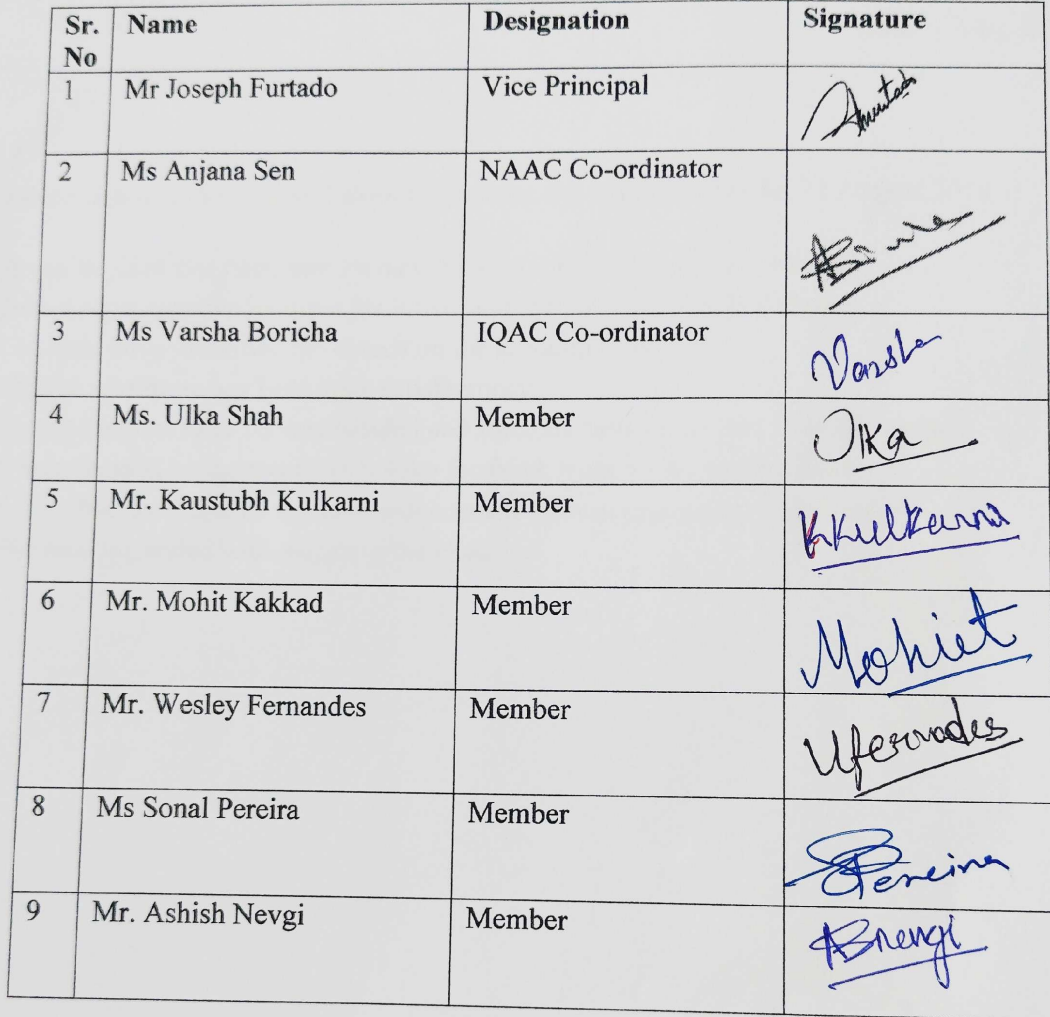 Sr. No Name Designation Signature
1 Mr Joseph Furtado Vice Principal
2 Ms Anjana Sen NAAC Co-ordinator
3 Ms Varsha Boricha IQAC Co-ordinator Varsha
4 Ms. Ulka Shah Member Ulka
5 Mr. Kaustubh Kulkarni Member KKulkarni
6 Mr. Mohit Kakkad Member Mohiet
7 Mr. Wesley Fernandes Member
8 Ms Sonal Pereira Member Pereira
9 Mr. Ashish Nevgi Member ABnevgi